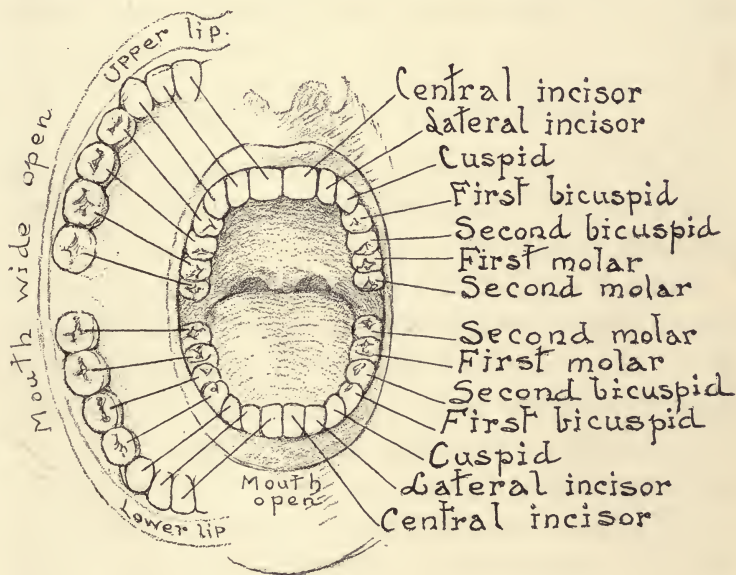 Upper lip.
Mouth wide open
Lower lip
Central incisor
Lateral incisor
Cuspid
First bicuspid
Second bicuspid
First molar
Second molar
Second molar
First molar
Second bicuspid
First bicuspid
Cuspid
Lateral incisor
Central incisor
Mouth
open